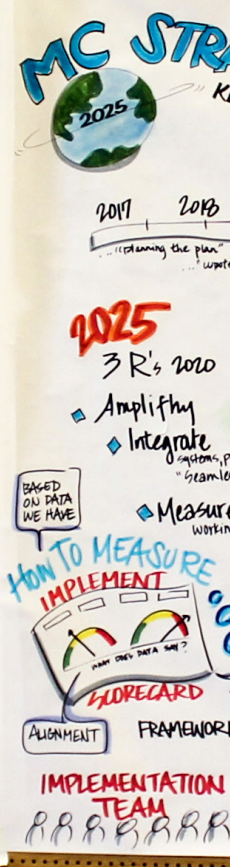 MC STRA
2025
2017 2018
..."planning the plan"
3 R's 2020
2025
Amplifhy
Integrate
systems, P
"Seamle
BASED
ON DATA
WE HAVE
Measure
workin
HOW TO MEASURE
IMPLEMENT
WHAT DOES DATA SAY?
SCORECARD
ALIGNMENT
FRAMEWOR
IMPLEMENTATION
TEAM